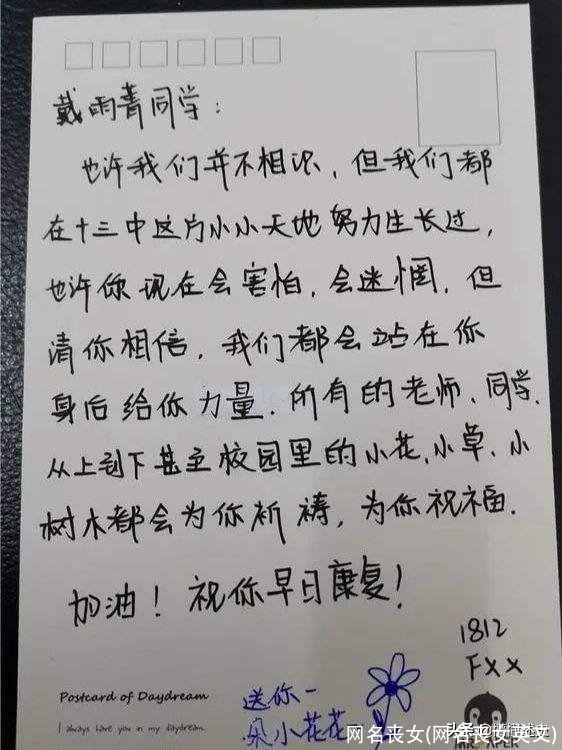 戴雨菁同学:
也许我们并不相识,但我们都
在十三中这方小小天地努力生长过,
也许你现在会害怕,会迷惘,但
请你相信,我们都会站在你
身后给你力量.所有的老师、同学、
从上到下甚至校园里的小花、小草、小
树木都会为你祈祷,为你祝福.
加油!祝你早日康复!
1812
FXX
送你一
朵小花花
Postcard of Daydream
I always have you in my daydream
MR. PAPER
头条
网名丧女(网名丧女英文)